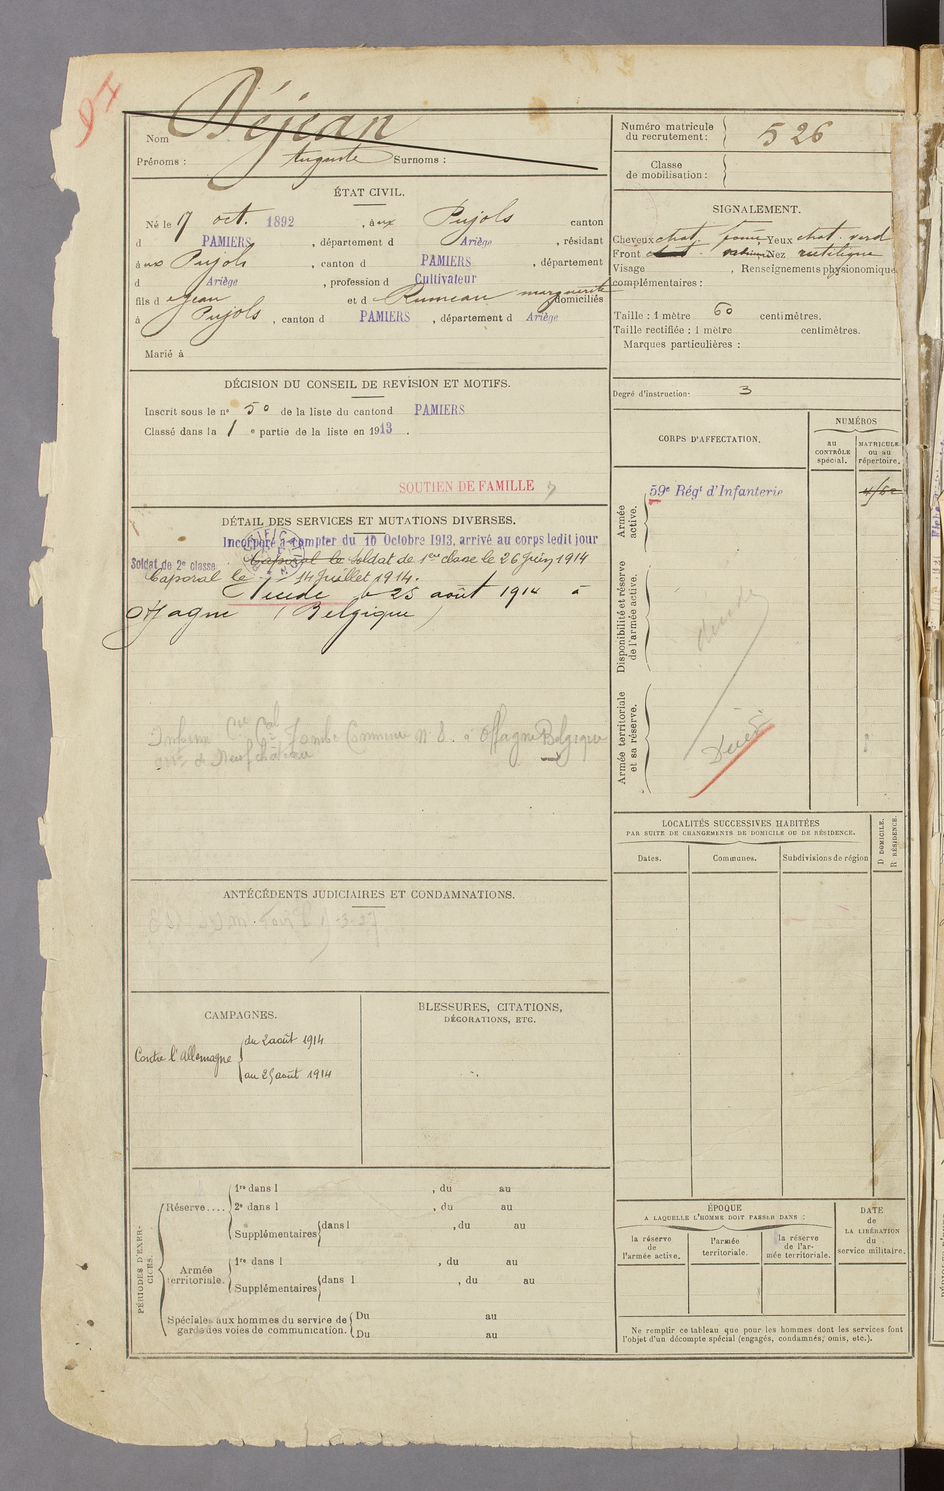 97
Nom Déjean
Prénoms : Auguste Surnoms :
Numéro matricule du recrutement : 526
Classe de mobilisation :
ÉTAT CIVIL.
Né le 17 oct. 1892, à ux Pujols canton
d PAMIERS, département d Ariège, résidant
à aux Pujols, canton d PAMIERS, département
d Ariège, profession d Cultivateur
fils d e Jean et d Rumeau marguerite domiciliés
à Pujols, canton d PAMIERS, département d Ariège
Marié à
SIGNALEMENT.
Cheveux chat. Yeux chat. verd
Front Nez rectiligne
Visage , Renseignements physionomiques
complémentaires :
Taille : 1 mètre 60 centimètres.
Taille rectifiée : 1 mètre centimètres.
Marques particulières :
Degré d'instruction : 3
DÉCISION DU CONSEIL DE REVISION ET MOTIFS.
Inscrit sous le n° 50 de la liste du canton d PAMIERS
Classé dans la 1 e partie de la liste en 1913.
SOUTIEN DE FAMILLE
CORPS D'AFFECTATION.
NUMÉROS
au CONTRÔLE spécial.
MATRICULE ou au répertoire.
Armée active.
59e Régt d'Infanterie
Disponibilité et réserve de l'armée active.
décédé
Armée territoriale et sa réserve.
Décédé
DÉTAIL DES SERVICES ET MUTATIONS DIVERSES.
Incorporé à compter du 10 Octobre 1913, arrivé au corps ledit jour
Soldat de 2e classe Caporal le Soldat de 1ere classe le 26 Juin 1914
Caporal le 14 Juillet 1914.
Décédé le 25 août 1914 à
Offagne (Belgique)
Inhumé Tombe Commune N° 8. à Offagne Belgique
de Neufchâteau
LOCALITÉS SUCCESSIVES HABITÉES
PAR SUITE DE CHANGEMENTS DE DOMICILE OU DE RÉSIDENCE.
Dates.
Communes.
Subdivisions de région
D DOMICILE.
R RÉSIDENCE.
ANTÉCÉDENTS JUDICIAIRES ET CONDAMNATIONS.
CAMPAGNES.
Contre l'Allemagne
du 2 août 1914
au 25 août 1914
BLESSURES, CITATIONS,
DÉCORATIONS, ETC.
PÉRIODES D'EXERCICES.
Réserve....
1re dans l , du au
2e dans l , du au
Supplémentaires dans l , du au
Armée territoriale.
1re dans l , du au
Supplémentaires dans l , du au
Spéciales aux hommes du service de garde des voies de communication.
Du au
Du au
ÉPOQUE
A LAQUELLE L'HOMME DOIT PASSER DANS :
la réserve de l'armée active.
l'armée territoriale.
la réserve de l'armée territoriale.
DATE de LA LIBÉRATION du service militaire.
Ne remplir ce tableau que pour les hommes dont les services font
l'objet d'un décompte spécial (engagés, condamnés, omis, etc.).